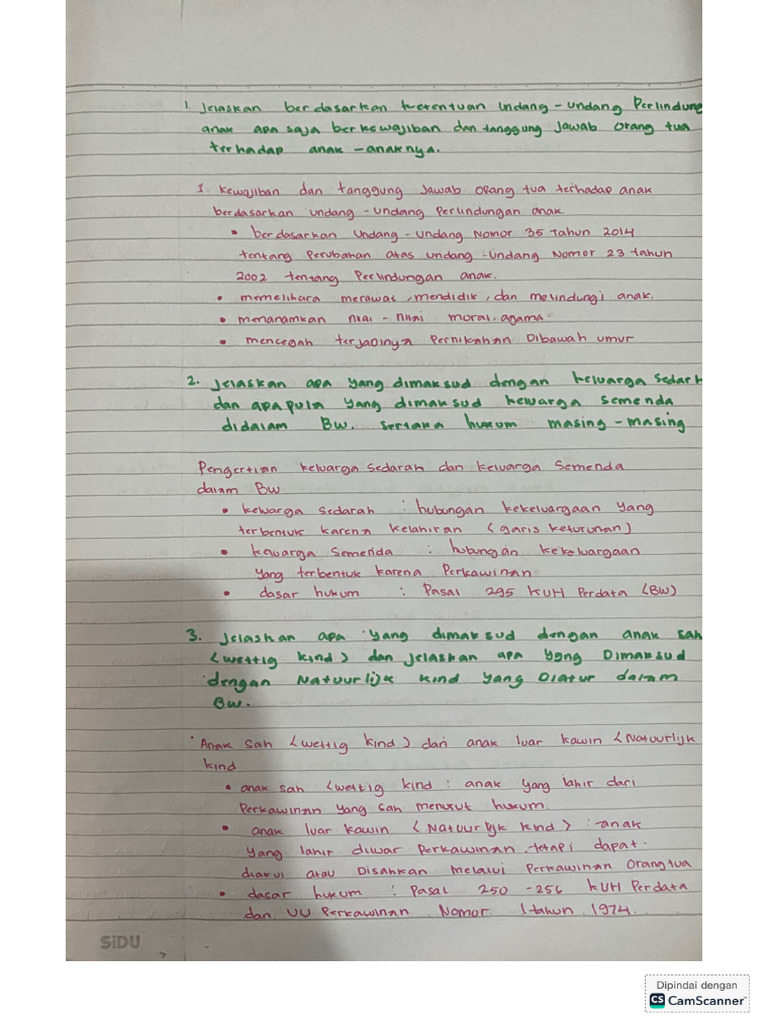 1. Jelaskan berdasarkan ketentuan undang-undang Perlindung
anak apa saja berkewajiban dan tanggung jawab orang tua
terhadap anak-anaknya.
1 kewajiban dan tanggung jawab orang tua terhadap anak
berdasarkan undang-undang Perlindungan anak.
• berdasarkan undang-undang Nomor 35 tahun 2014
tentang Perubahan atas undang-undang Nomor 23 tahun
2002 tentang Perlindungan anak.
• memelihara merawat, mendidik, dan melindungi anak.
• menanamkan nilai-nilai moral, agama
• mencegah terjadinya Pernikahan Dibawah umur
2. Jelaskan apa yang dimaksud dengan keluarga sedarh
dan apa pula yang dimaksud keluarga semenda
didalam BW. sertaka hukum masing-masing
Pengertian keluarga sedarah dan keluarga Semenda
dalam BW
• keluarga sedarah : hubungan kekeluargaan yang
terbentuk karena kelahiran (garis keturunan)
• keluarga semenda : hubungan kekeluargaan
yang terbentuk karena Perkawinan
• dasar hukum : Pasal 295 KUH Perdata (BW)
3. Jelaskan apa yang dimaksud dengan anak sah
(wettig kind) dan jelaskan apa yang Dimaksud
dengan Natuurlijk kind yang Diatur dalam
BW.
• Anak sah (wettig kind) dan anak luar kawin (Natuurlijk
kind
• anak sah (wettig kind : anak yang lahir dari
Perkawinan yang sah menurut hukum.
• anak luar kawin (Natuurlijk kind) : anak
yang lahir diluar perkawinan tetapi dapat
diakui atau Disahkan melalui Perkawinan Orangtua
• dasar hukum : Pasal 250-256 KUH Perdata
dan UU Perkawinan Nomor 1 tahun 1974.
SiDU
Dipindai dengan
CS CamScanner